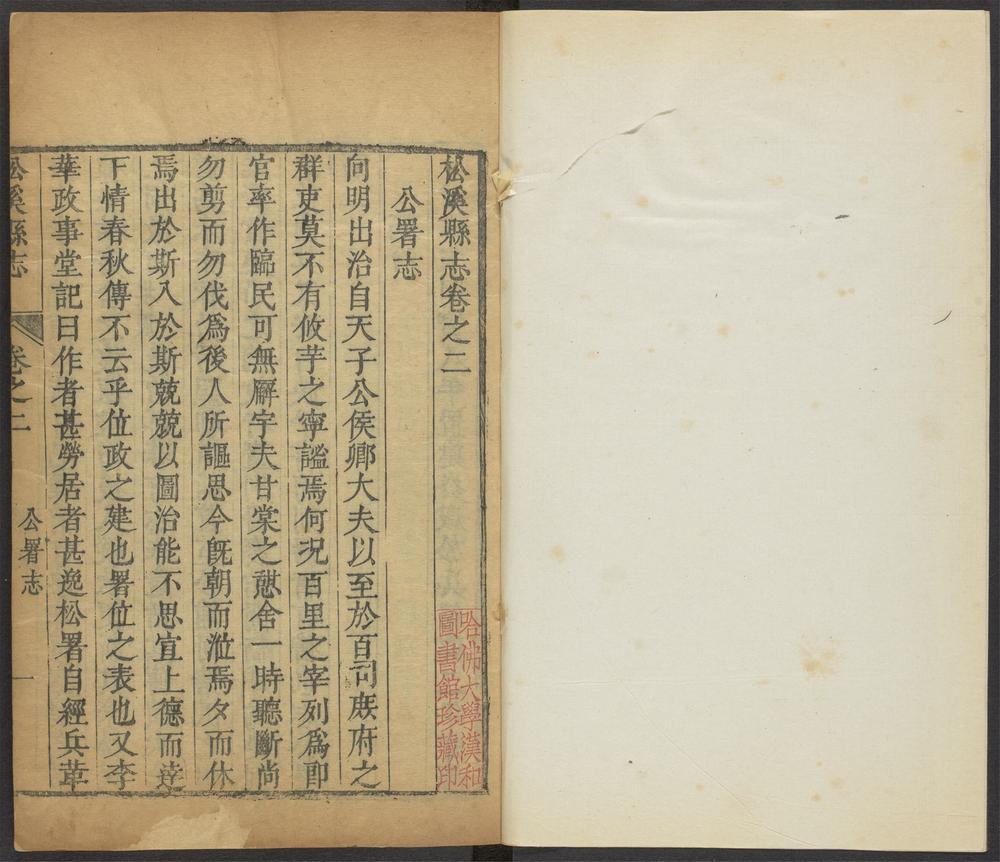 松溪縣志卷之二
公署志
向明出治自天子公侯卿大夫以至於百司庶府之
群吏莫不有攸芋之寧謐焉何況百里之宰列爲郎
官率作臨民可無廨宇夫甘棠之憇舍一時聽斷尚
勿剪而勿伐爲後人所謳思今旣朝而涖焉夕而休
焉出於斯入於斯兢兢以圖治能不思宣上德而達
下情春秋傳不云乎位政之建也署位之表也又李
華政事堂記曰作者甚勞居者甚逸松署自經兵革
松溪縣志
卷之二
公署志
一
哈佛大學漢和
圖書館珍藏印